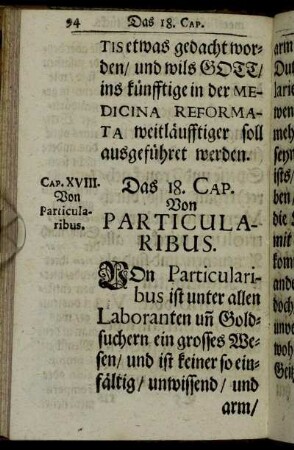 94 Das 18. CAP.
TIS etwas gedacht wor-
den/ und wils GOTT/
ins künfftige in der ME-
DICINA REFORMA-
TA weitläufftiger soll
ausgeführet werden.
CAP. XVIII.
Von
Particula-
ribus.
Das 18. CAP.
Von
PARTICULA-
RIBUS.
VOn Particulari-
bus ist unter allen
Laboranten uñ Gold-
suchern ein grosses We-
sen/ und ist keiner so ein-
fältig/ unwissend/ und
arm/